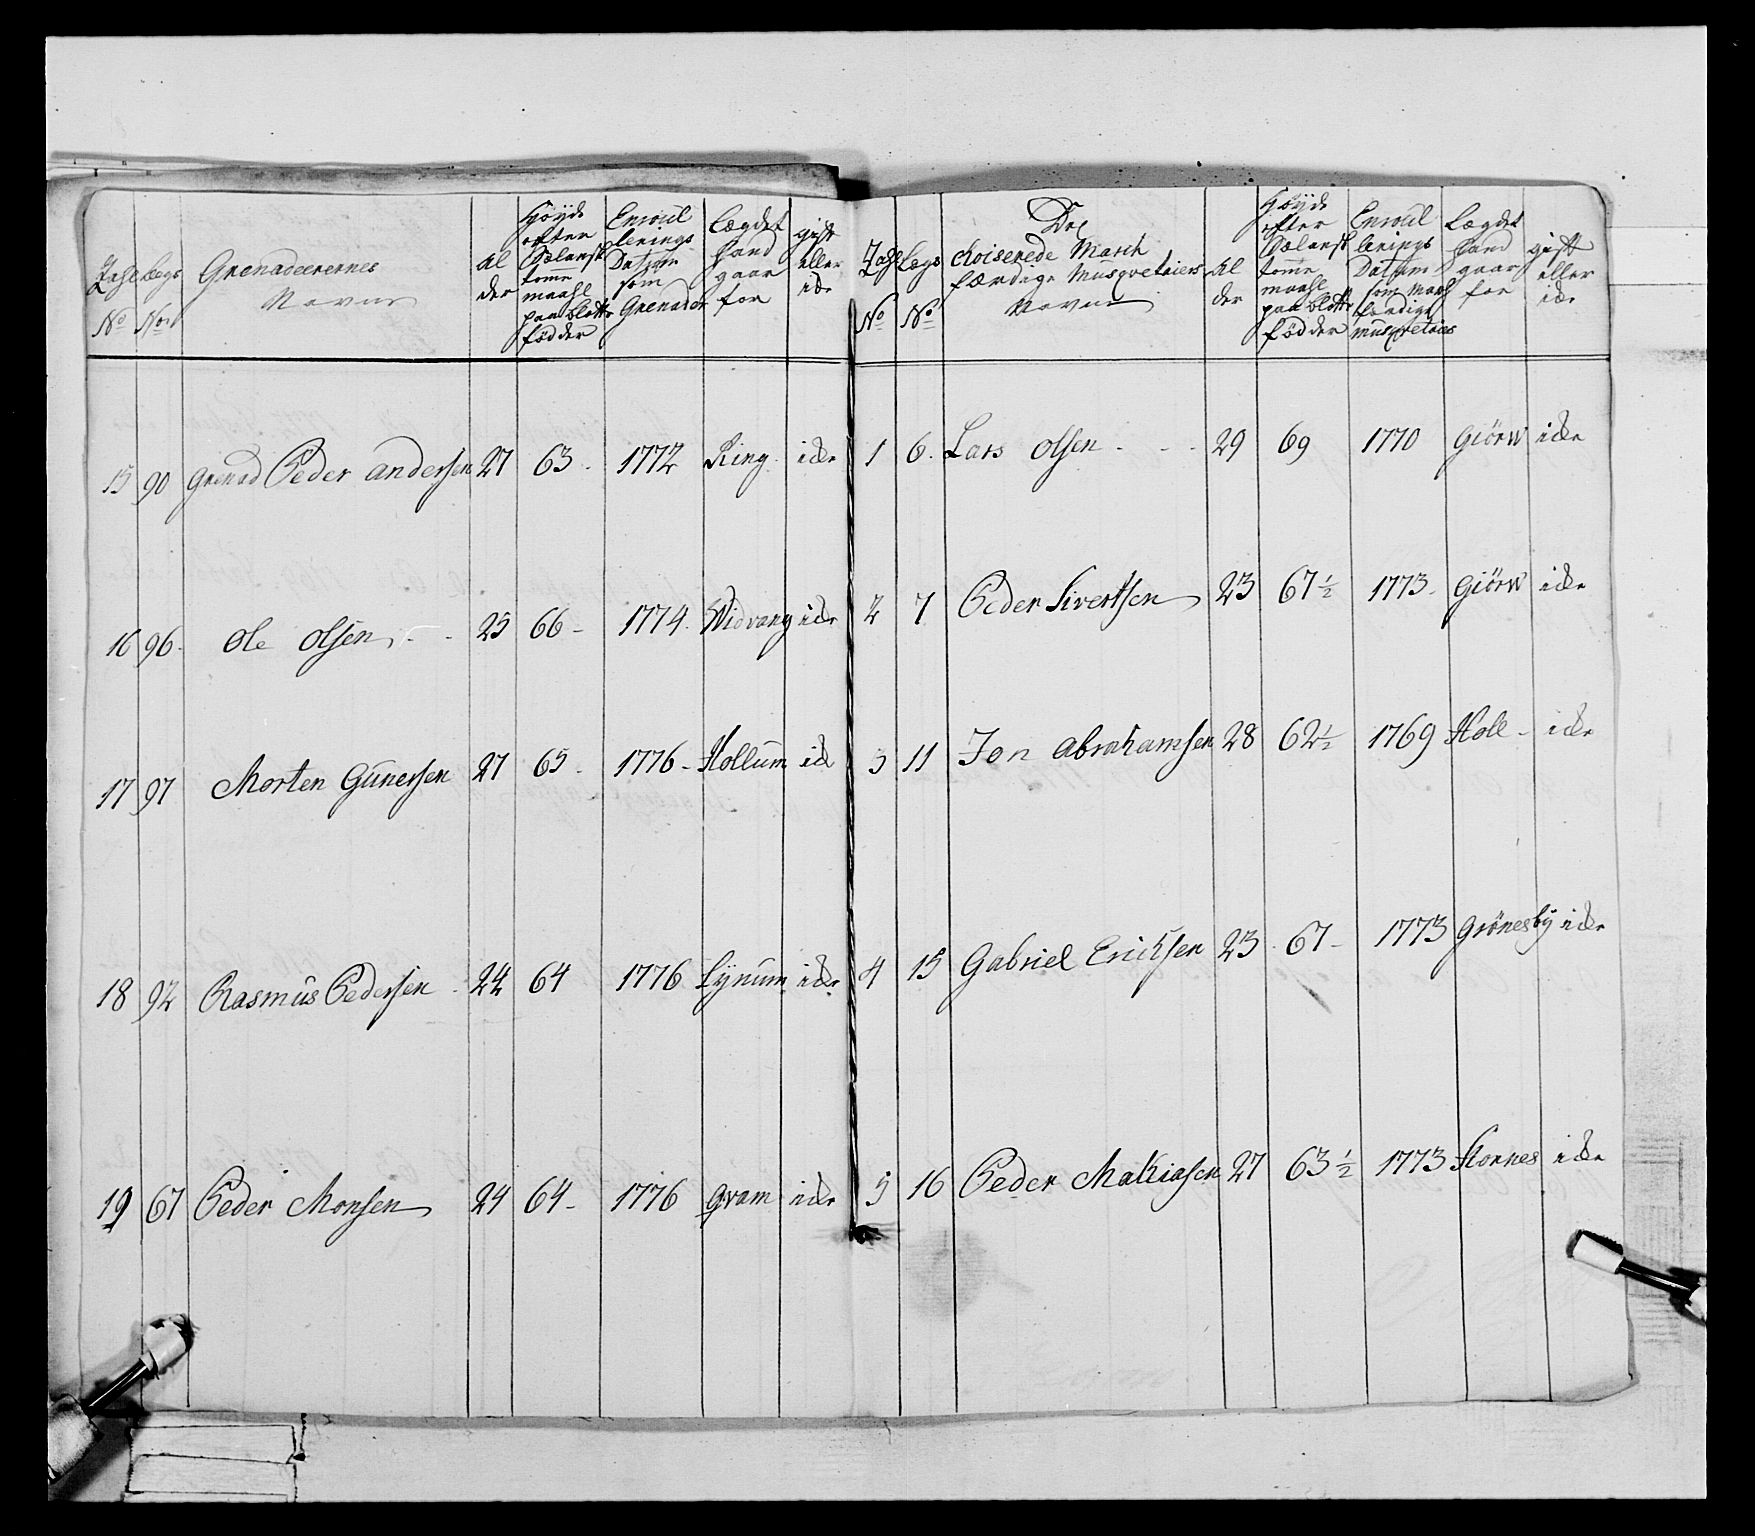 Lægs
No
No
Grenadeerernes
Navne
Al
der
Høyde
efter
Siælansk
tomme
maahl
paa blotte
fødder
Enroul
lerings
Datum
som
Grenader
Lægdet
hand
gaar
for
gift
eller
icke
15 90 Grenad Peder Andersen 27 63 - 1772 Ring icke
16 96 Ole Olsen - - 25 66 - 1774 Widvang icke
17 97 Morten Gunersen 27 65 - 1776 - Hollum ick
18 92 Rasmus Pedersen - 24 64 1776 Lynum icke
19 67 Peder Monsen 24 64 - 1776 Qvam icke
No
Lægs
No
De
Choiserede March
færdige Musqveteiers
Navne
Al
der
Høyde
efter
Siælansk
tomme
maahl
paa blotte
fødder
Enroul
lerings
Datum
som March
færdige
musqveteers
Lægdet
hand
gaar
for
gift
eller
icke
1 6 Lars Olsen - - - 29 69 1770 Giörw icke
2 7 Peder Sivertsen 23 67 1/2 1773 - Giörw icke
3 11 Jon Abrahamsen 28 62 1/2 1769 Holl - icke
4 15 Gabriel Ericksen 23 67 - 1773 Grönesby icke
5 16 Peder Matiasen 27 63 1/2 1773 Stornes icke